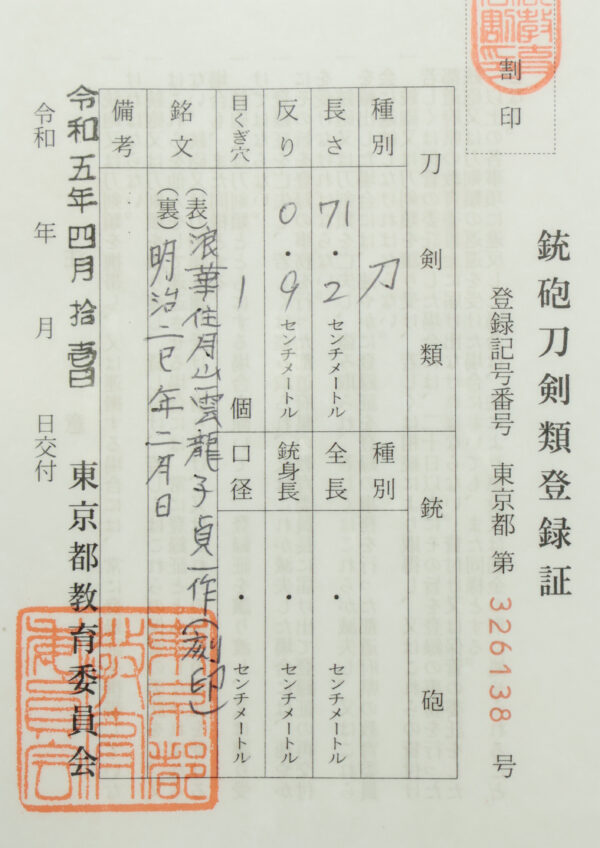 割印
銃砲刀剣類登録証
登録記号番号 東京都 第 326138 号
刀剣類
銃砲
種別 刀
種別
長さ 71・2 センチメートル
全長 ・ センチメートル
反り 0・9 センチメートル
銃身長 ・ センチメートル
目くぎ穴 1 個
口径 ・ センチメートル
銘文 (表)浪華住月山雲龍子貞一作(刻印)
(裏)明治二巳年二月日
備考
令和五年四月拾壱日
令和 年 月 日交付
東京都教育委員会
東京都教育委員会